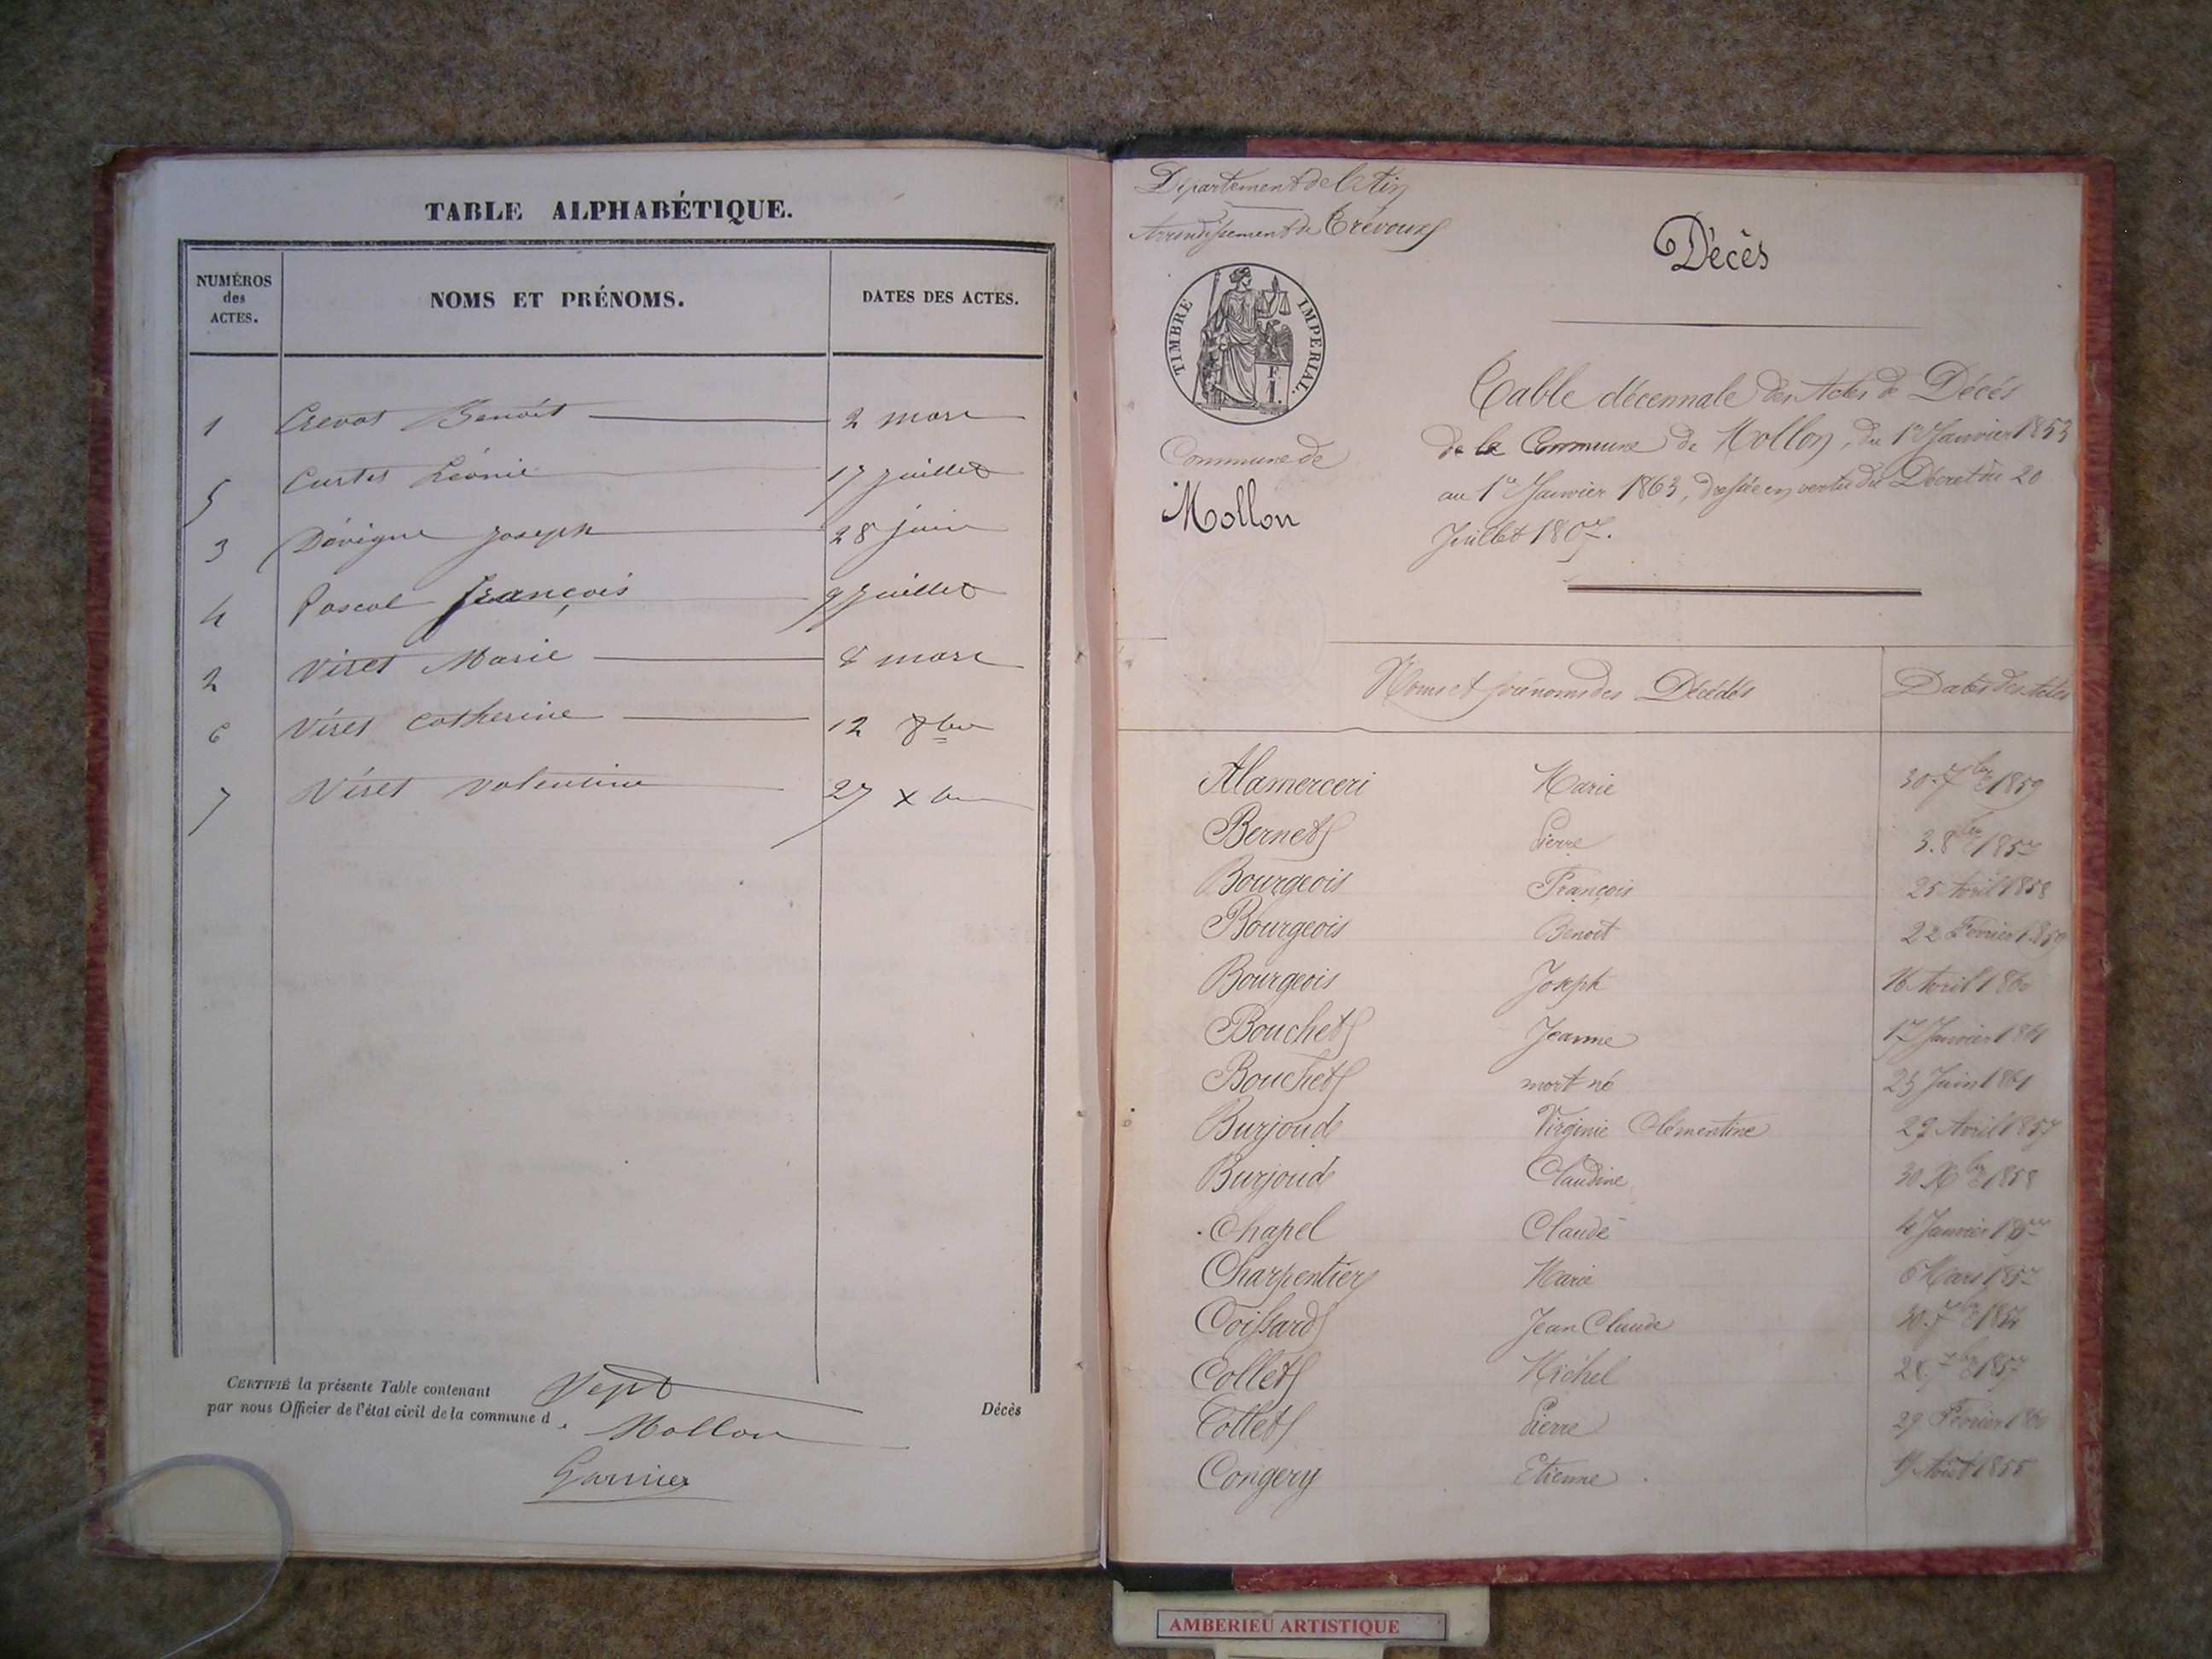 TABLE ALPHABÉTIQUE.
NUMÉROS des ACTES. NOMS ET PRÉNOMS. DATES DES ACTES.
1 Crevat Benoît 2 mars
5 Curtet Léonie 17 juillet
3 Dévigne Joseph 28 juin
4 Pascal François 9 juillet
2 Viret Marie 8 mars
6 Viret Catherine 12 8bre
7 Viret Valentine 27 Xbre
CERTIFIÉ la présente Table contenant Sept Décès
par nous Officier de l'état civil de la commune d. Mollon
Garnier
Département de l'Ain
Arrondissement de Trévoux
TIMBRE IMPERIAL.
E. I.
Commune de
Mollon
Décès
Table décennale des Actes de Décès
de la Commune de Mollon, du 1er Janvier 1853
au 1er Janvier 1863, dressée en vertu du Décret du 20
Juillet 1807.
Noms et prénoms des Décédés Dates des Actes
Alamerceri Marie 30. 7bre 1859
Bernet Pierre 3. 8bre 1857
Bourgeois François 25 Avril 1858
Bourgeois Benoit 22 Février 1859
Bourgeois Joseph 16 Avril 1860
Bouchet Jeanne 17 Janvier 1861
Bouchet mort né 25 Juin 1861
Burjoud Virginie Clémentine 29 Avril 1857
Burjoud Claudine 30 Xbre 1858
Chapel Claude 4 Janvier
Charpentier Marie 6 Mars 1857
Coissard Jean Claude 30. 7bre
Collet Michel 28. 7bre 1857
Collet Pierre 29 Février 1860
Congery Etienne Août 1855
AMBERIEU ARTISTIQUE